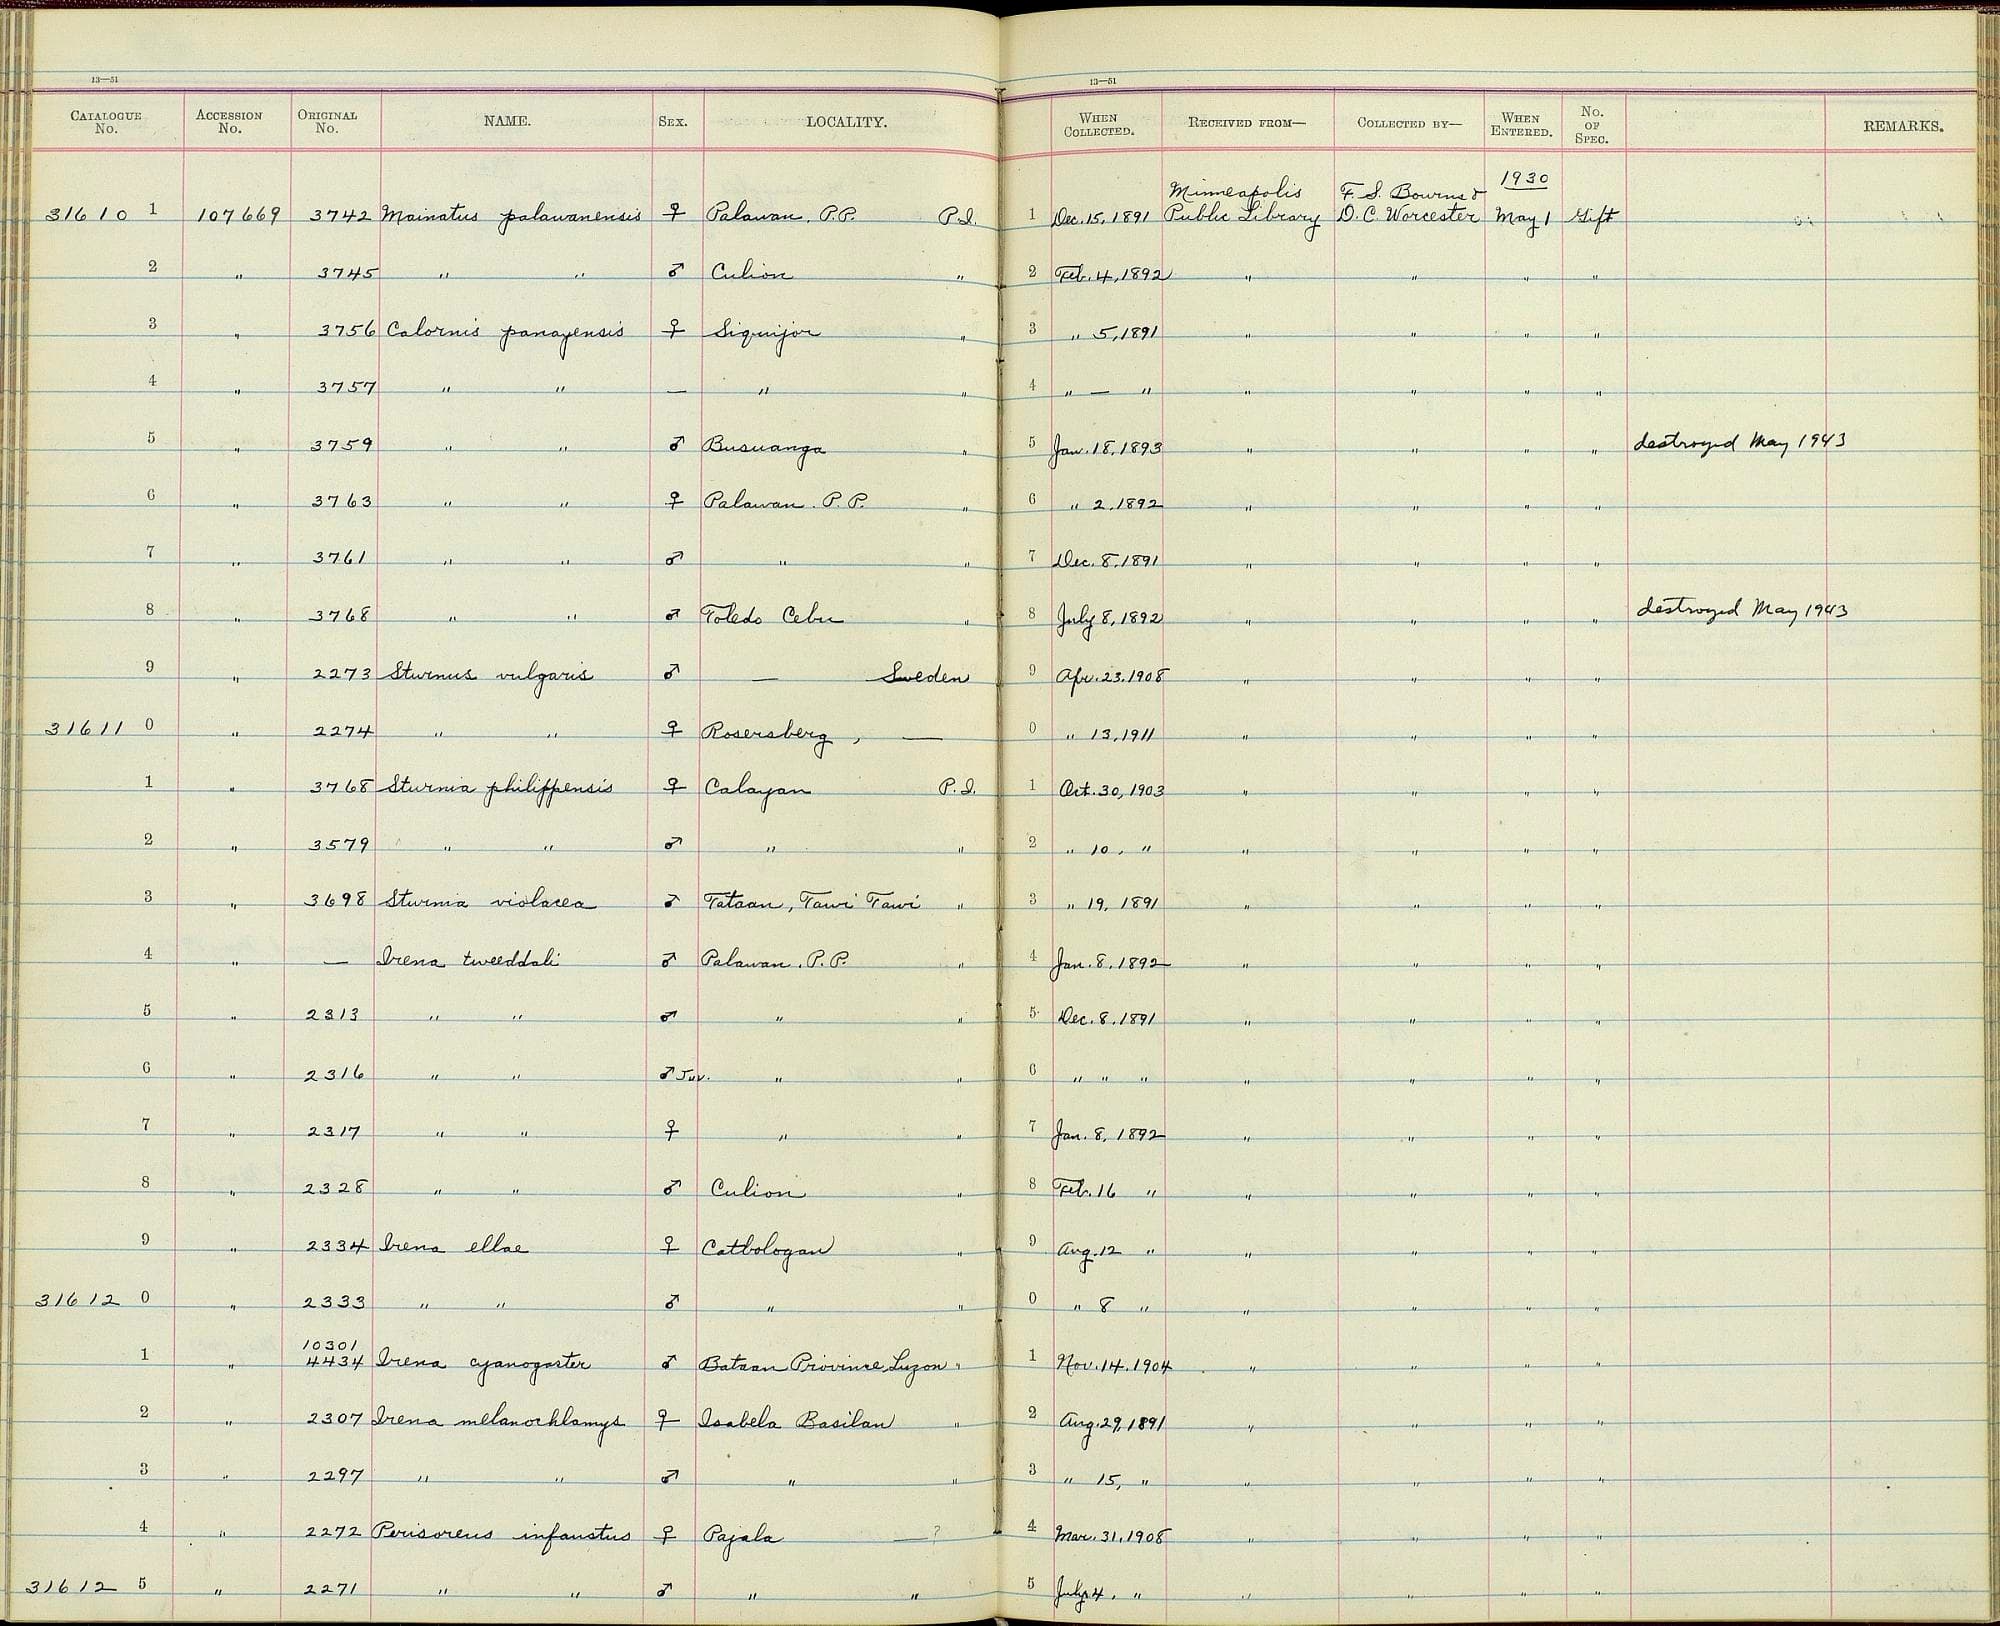 13—51
13—51
CATALOGUE No. ACCESSION No. ORIGINAL No. NAME. SEX. LOCALITY. WHEN COLLECTED. RECEIVED FROM— COLLECTED BY— WHEN ENTERED. No. OF SPEC. REMARKS.
1930
31610 1 107669 3742 Mainatus palawanensis ♀ Palawan, P.P. P.I. 1 Dec. 15, 1891 Minneapolis Public Library F. S. Bourns & D. C. Worcester May 1 Gift
2 " 3745 " " ♂ Culion " 2 Feb. 4, 1892 " " " "
3 " 3756 Calornis panayensis ♀ Siquijor " 3 " 5, 1891 " " " "
4 " 3757 " " — " " 4 " — " " " " "
5 " 3759 " " ♂ Busuanga " 5 Jan. 18, 1893 " " " " destroyed May 1943
6 " 3763 " " ♀ Palawan. P. P. " 6 " 2, 1892 " " " "
7 " 3761 " " ♂ " " 7 Dec. 8, 1891 " " " "
8 " 3768 " " ♂ Toledo Cebu " 8 July 8, 1892 " " " " destroyed May 1943
9 " 2273 Sturnus vulgaris ♂ — Sweden 9 Apr. 23. 1908 " " " "
31611 0 " 2274 " " ♀ Rosersberg, — 0 " 13, 1911 " " " "
1 " 3768 Sturnia philippensis ♀ Calayan P.I. 1 Oct. 30, 1903 " " " "
2 " 3579 " " ♂ " " 2 " 10, " " " " "
3 " 3698 Sturnia violacea ♂ Tataan, Tawi Tawi " 3 " 19, 1891 " " " "
4 " — Irena tweeddali ♂ Palawan. P.P. " 4 Jan. 8, 1892 " " " "
5 " 2313 " " ♂ " " 5 Dec. 8, 1891 " " " "
6 " 2316 " " ♂ Juv. " " 6 " " " " " " "
7 " 2317 " " ♀ " " 7 Jan. 8, 1892 " " " "
8 " 2328 " " ♂ Culion " 8 Feb. 16 " " " " "
9 " 2334 Irena ellae ♀ Catbologan " 9 Aug. 12 " " " " "
31612 0 " 2333 " " ♂ " " 0 " 8 " " " " "
10301
1 " 4434 Irena cyanogaster ♂ Bataan Province, Luzon " 1 Nov. 14. 1904 " " " "
2 " 2307 Irena melanochlamys ♀ Isabela Basilan " 2 Aug. 29, 1891 " " " "
3 " 2297 " " ♂ " " 3 " 15, " " " " "
4 " 2272 Perisoreus infaustus ♀ Pajala —? 4 Mar. 31, 1908 " " " "
31612 5 " 2271 " " ♂ " " 5 July 4, " " " " "